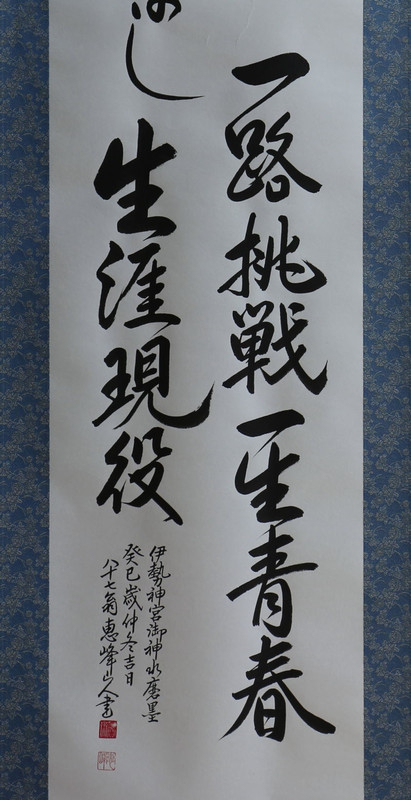 一路挑戦一生青春
し生涯現役
伊勢神宮御神水磨墨
癸巳歳仲冬吉日
八十七翁恵峰山人書